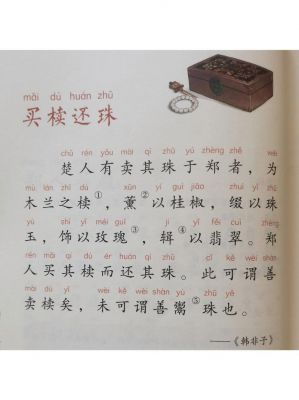 mǎi dú huán zhū
买椟还珠
chǔ rén yǒu mài qí zhū yú zhèng zhě wéi
楚人有卖其珠于郑者，为
mù lán zhī dú xūn yǐ guì jiāo zhuì yǐ zhū
木兰之椟①，薰②以桂椒，缀以珠
yù shì yǐ méi guī jí yǐ fěi cuì zhèng
玉，饰以玫瑰③，缉④以翡翠。郑
rén mǎi qí dú ér huán qí zhū cǐ kě wèi shàn
人买其椟而还其珠。此可谓善
mài dú yǐ wèi kě wèi shàn yù zhū yě
卖椟矣，未可谓善鬻⑤珠也。
——《韩非子》